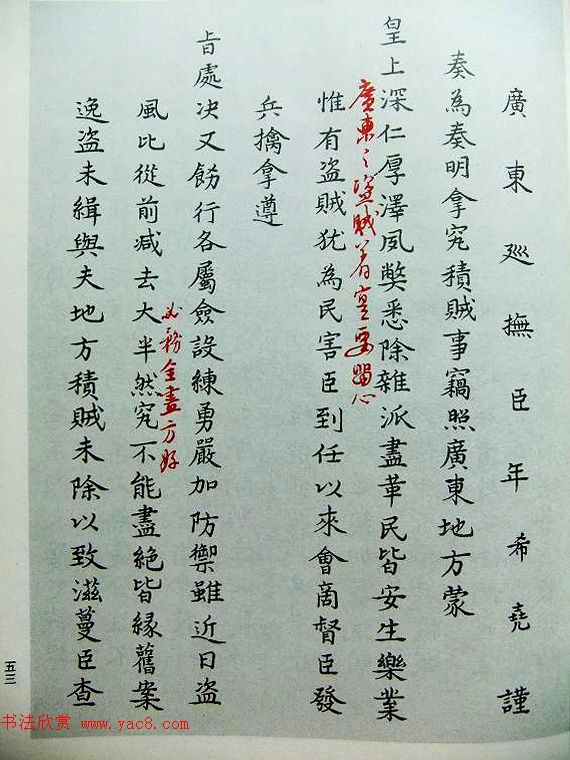 廣東巡撫臣年希堯謹
奏為奏明拿究積賊事竊照廣東地方蒙
皇上深仁厚澤夙獘悉除雜派盡革民皆安生樂業
廣東之盜賊著寔要留心
惟有盜賊犹為民害臣到任以來會啇督臣發
兵擒拿遵
㫖處决又飭行各屬僉設練勇嚴加防禦雖近日盜
必務全盡方好
風比從前减去大半然究不能盡絕皆緣舊案
逸盜未緝與夫地方積賊未除以致滋蔓臣查
五三
书法欣赏 www.yac8.com